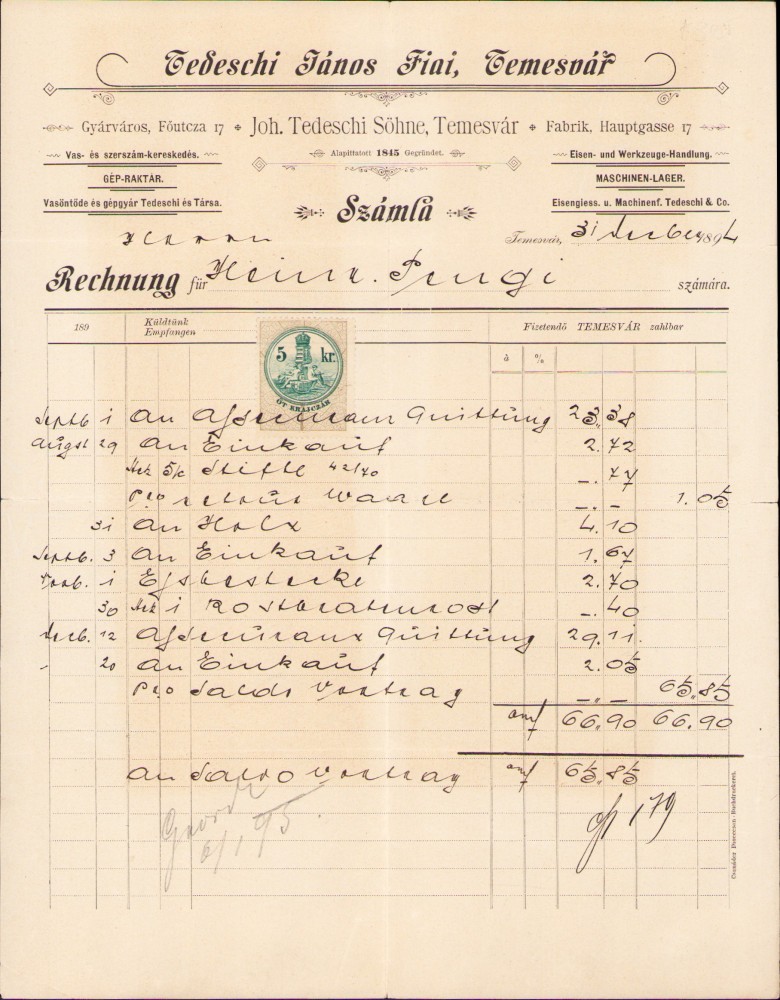 Tedeschi János Fiai, Temesvár
Gyárváros, Főutcza 17 Joh. Tedeschi Söhne, Temesvár Fabrik, Hauptgasse 17
Vas- és szerszám-kereskedés. Alapittatott 1845 Gegründet. Eisen- und Werkzeuge-Handlung.
GÉP-RAKTÁR. MASCHINEN-LAGER.
Vasöntöde és gépgyár Tedeschi és Társa. Számla Eisengiess. u. Machinenf. Tedeschi & Co.
Herrn Temesvár, 31 Decber 1894
Rechnung für Heinr. számára.
189 Küldtünk Empfangen Fizetendő TEMESVÁR zahlbar
à %
5 kr.
ÖT KRAJCZÁR
Septb 1 An Assecuranz Quittung 23.38
Augst 29 An Einkauf 2.72
5/c Stifte 42/40 -.77
Pro retour Waare -.- 1.05
31 An Holz 4.10
Septb. 3 An Einkauf 1.67
Novb. 1 Essbestecke 2.70
30 1 Rostbratenrost -.40
Decb. 12 Assecuranz Quittung 29.11.
- 20 An Einkauf 2.05
Pro Saldo Vortrag -.- 65.85
66.90 66.90
An Saldo Vortrag 65.85
6/1 95.
179
Csendes Ferencsn Buchdruckerei.